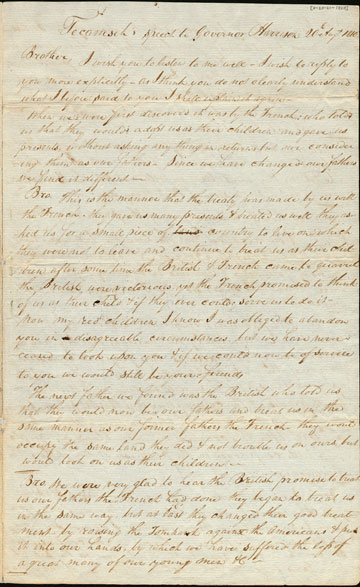 Tecumseh's speech to Governor Harrison 20th Aug 1810
Brother. I wish you to listen to me well - I wish to reply to
you more explicitly - as I think you do not clearly understand
what I before said to you I will explain it again -
When we were first discovered it was by the French who told
us that they would adopt us as their children and gave us
presents without asking any thing in return but our consider
ing them as our fathers - Since we have changed our fathers
we find it different -
Bro. This is the manner that the treaty was made by us with
the French - they gave us many presents & treated us well they as
ked us for a small piece of country to live on which
they were not to leave and continue to treat us as their chil
dren, after some time the British & French came to quarrel
the British were victorious yet the French promised to think
of us as their child & if they ever could serve us to do it -
Now my red children I know I was obliged to abandon
you in disagreeable circumstances, but we have never
ceased to look upon you & if we could now be of service
to you we would still be your friends
The next father we found was the British who told us
that they would now be our fathers and treat us in the
same manner as our former fathers the French they would
occupy the same land they did & not trouble us on ours, but
would look on us as their children -
Bro. We were very glad to hear the British promise to treat
us as our fathers the French had done they began to treat us
in the same way but at last they changed their good treat
ment by raising the Tomhawk against the Americans & put
it into our hands, by which we have suffered the loss of
a great many of our young men &c